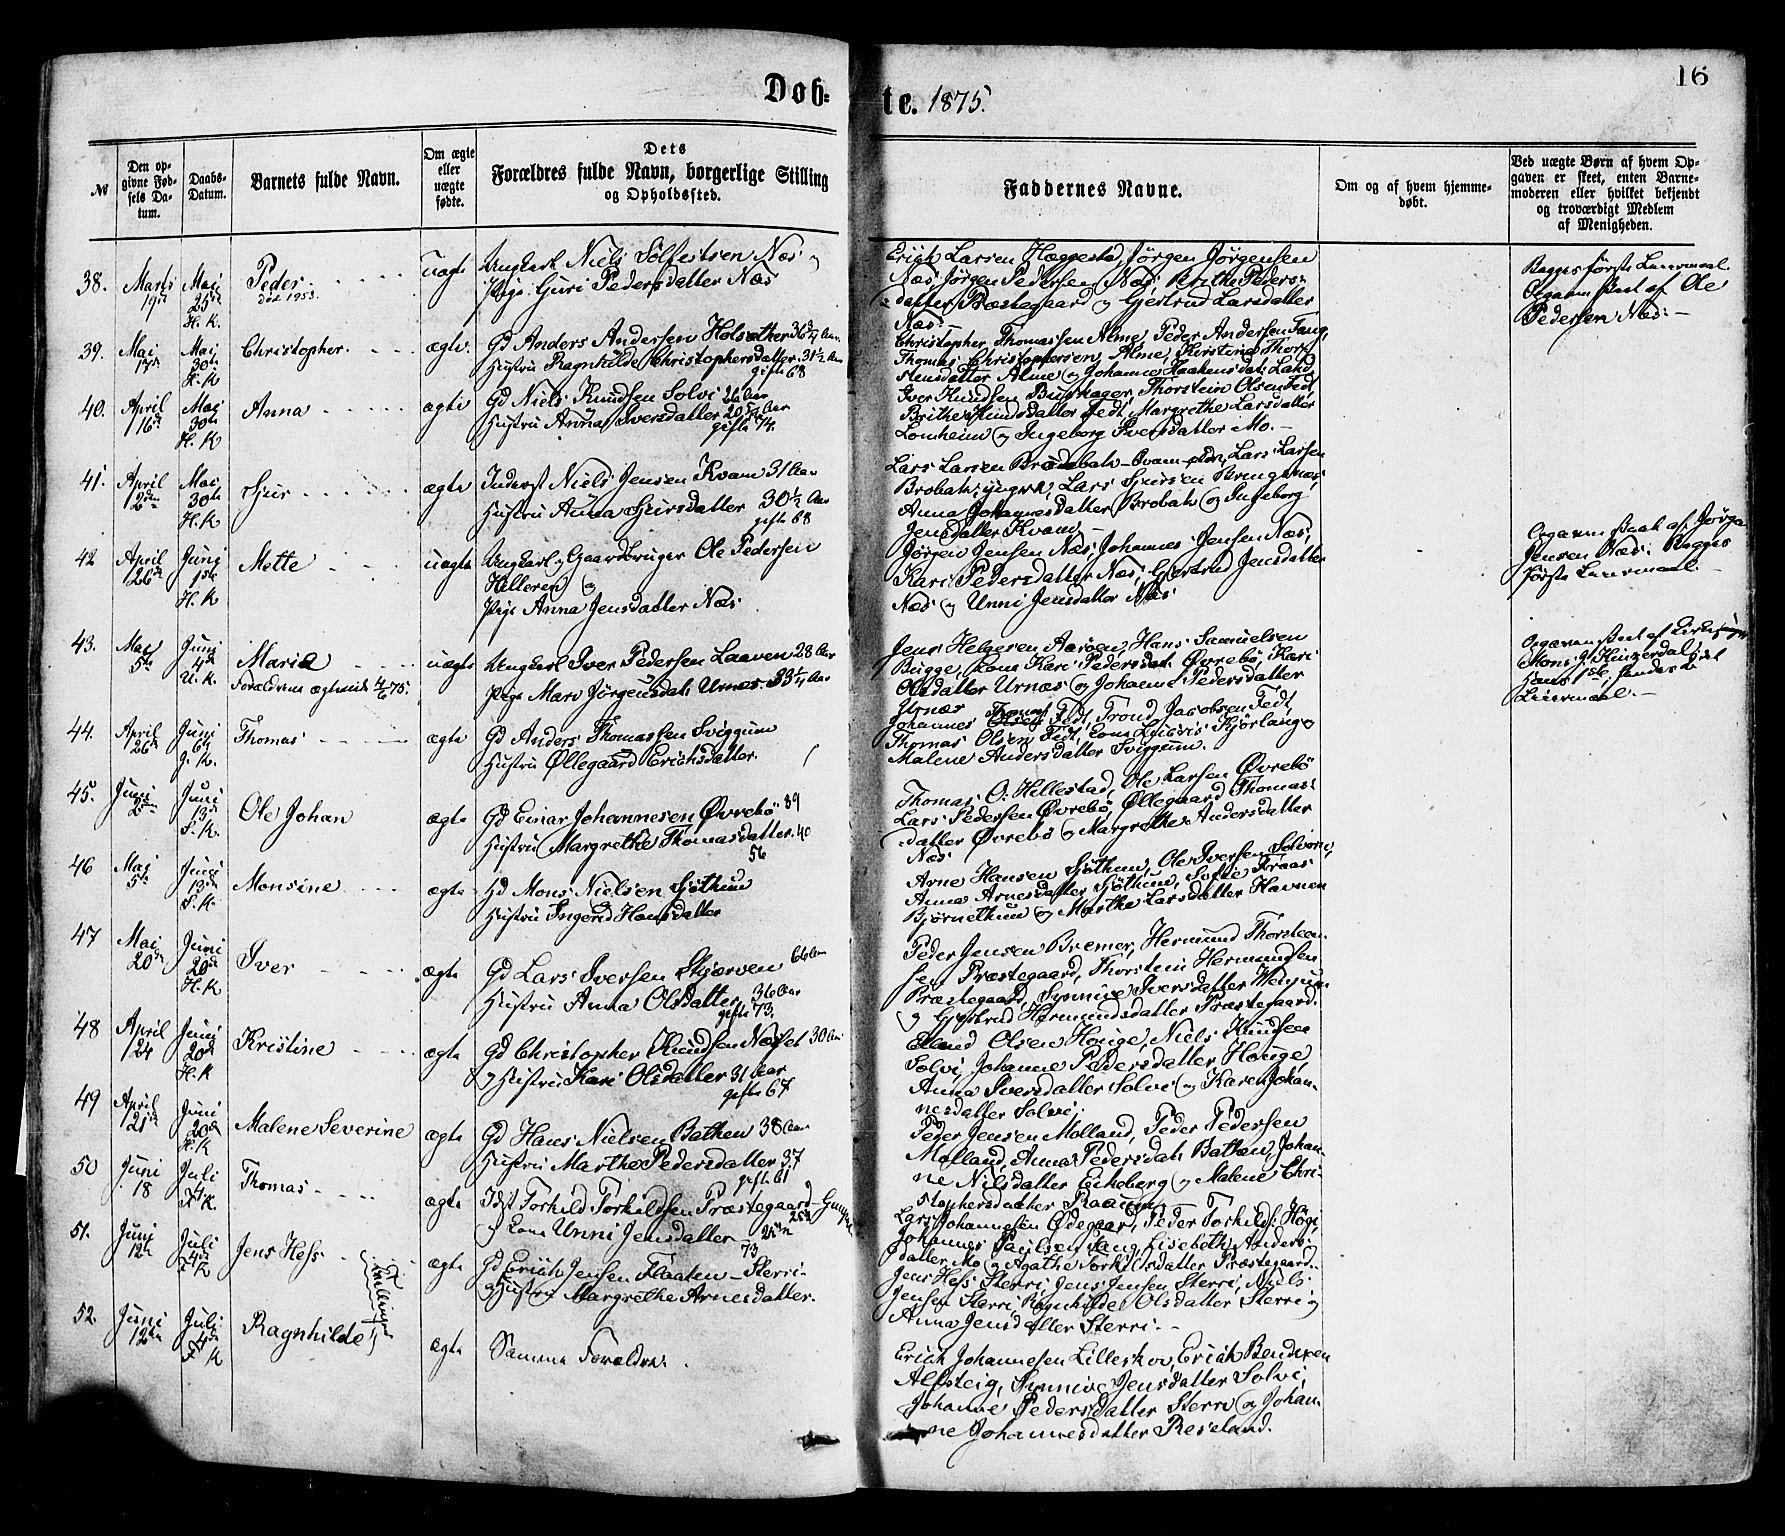 Døb=
te. 1875.
16
№
Den opgivne Fødsels Datum.
Daabs-Datum.
Barnets fulde Navn.
Om ægte eller uægte fødte.
Dets
Forældres fulde Navn, borgerlige Stilling
og Opholdssted.
Faddernes Navne.
Om og af hvem hjemmedøbt.
Ved uægte Børn af hvem Opgaven er skeet, enten Barnemoderen eller hvilket bekjendt og troværdigt Medlem af Menigheden.
38. Marts 19de Mai 25de H. K.
Peder
død 1953.
uægte
Ungkarl Niels Solfestsen Næs og
Pige Guri Pedersdatter Næs
Erich Larsen Hæggestad, Jørgen Jørgensen
Næs, Jørgen Pedersen Næs, Brithe Peders-
datter Præstegaard og Gjertrud Larsdatter
Næs.
Begges første Leiermaal
Opgaven skeet af Ole
Pedersen Næs. —
39. Mai Mai 30te H. K
Christopher.
ægte
Gd Anders Andersen Holsæther
Hustru Ragnhilde Christophersdatter 31½ Aar
gifte 68
Christopher Thomassen Alme, Peder Andersen Tang,
Thomas Christophersen Alme, Kirstine Thor-
stensdatter Alme og Johanne Haakensdat. Land
40. April 16de Mai 30te H. K
Anna
ægte
Gd Niels Knudsen Solvi 26 Aar
Hustru Anna Iversdatter
gifte 74.
Iver Knudsen Bukhager, Thorstein Olsen Fedt,
Brithe Knudsdatter Fedt, Margrethe Larsdatter
Lomheim og Ingeborg Iversdatter Mo. —
41. April 2den Mai 30te H. K
Sjur
ægte
Inderst Niels Jensen Kvam 31 Aar
Hustru Anna Sjursdatter 30½ Aar
gifte 68
Lars Larsen Lars Larsen
Brobak, yngre, Lars Sjursen
Anna Johannesdatter Brobak og Ingeborg
Jensdatter Kvam —
42 April 26de Juni 1ste H. K
Mette
uægte
Ungkarl og Gaardbruger Ole Pedersen
Helleren og
Pige Anna Jensdatter Næs
Jørgen Jensen Næs, Johannes Jensen Næs,
Kari Pedersdatter Næs, Gjertrud Jensdatter
Næs og Unni Jensdatter Næs
Opgaven skeet af Jørgen
Jensen Næs. Begges
første Leiermaal. —
43. Mai 5te Juni 4de U. K.
Maria
Forældrene ægteviede 4/6 75.
uægte
Ungkarl Iver Pedersen Laaven 28 Aar
Pige Mari Jørgensdat. Urnæs
Jens Helgesen Aarøen, Hans Samuelsen
Bugge, Kone Kari Pedersdat. Øvrebø, Kari
Olsdatter Urnæs og Johanne Pedersdatter
Urnæs
Opgaven skeet af
Leiermaal. —
44. April 26de Juni 6te G. K.
Thomas
ægte
Gd Anders Thomassen Sviggum
Hustru Øllegaard Erichsdatter.
Johannes Thomas Fedt, Trond Jacobsen Fedt,
Thomas Olsen Fedt, Kone Kjørlaug og
Malene Andersdatter Sviggum.
45. Juni 2den Juni 13de S. K.
Ole Johan
ægte
Gd Einar Johannesen Øvrebø 39
Hustru Margrethe Thomasdatter. 40
56
Thomas O. Hillestad, Ole Larsen Øvrebø
Lars Pedersen Øvrebø, Øllegaard Thomas-
datter Øvrebø og Margrethe Andersdatter
Næs
46 Mai 5te Juni 13de S. K
Monsine
ægte
Gd Mons Nielsen Sjøthun
Hustru Ingerid Hansdatter
Arne Hansen Sjøthun, Ole Iversen Solvorn,
Anna Arnesdatter Sjøthun, Sofie Traas
Bjørnethun og Marthe Larsdatter Havnen
47 Mai 20de Juni 20de H. K
Iver
ægte
Gd Lars Iversen Skjærven 66 Aar
Hustru Anna Olsdatter 36 Aar
gifte 73.
Peder Jensen Bremer, Hermund Thorsteen-
sen Præstegaard, Thorstein Hermundsen
Præstegaard, Synnive Iversdatter
og Gjertrud Hermundsdatter Præstegaard.
48 April 24 Juni 20de H. K
Kristine
ægte
Gd Christopher Knudsen Næset 30 Aar
og Hustru Kari Olsdatter 31 Aar
gifte 67
Erland Olsen Houge, Niels Knudsen
Solvi, Johanne Pedersdatter Houge,
Anna Iversdatter Solvi og Karen Johan-
nesdatter Solvi.
49 April 21de Juni 20de H. K
Malene Severine
ægte
Gd Hans Nielsen Bathen 38 Aar
Hustru Marthe Pedersdatter 37
gifte 61
Peder Jensen Molland, Peder Pedersen
Molland, Anna Pedersdat. Bathen, Johan-
ne Nilsdatter Eikeberg og Malene Chri-
stophersdatter Raaum
50 Juni 18 Juli 4 F K.
Thomas
ægte
Idst Torkild Torkildsen Præstegaard
og Kone Unni Jensdatter
73
Lars Johannesen Ødegaar, Peder Torkilds. Høgi
Johannes Paulsen Tang, Lisebeth Anders-
datter Mo og Agathe Torkildsdatter Præstegaard.
51. Juni 12te Juli 4de F K
Jens Hess
Tvillinger
ægte
Gd Erich Jensen Flaaten — Sterri
Hustru Margrethe Arnesdatter.
Jens Hess Sterri, Jens Jensen Sterri, Niels
Jensen Sterri, Ragnhilde Olsdatter Sterri og
Anna Jensdatter Sterri —
52. Juni 12te Juli 4de F K
Ragnhilde
ægte
Samme Forældre.
Erich Johannesen Lilleskov, Erich Bendixen
Alsteig, Synnive Jensdatter Solvi,
Johanne Pedersdatter Sterri og Johan-
ne Johannesdatter Reseland.